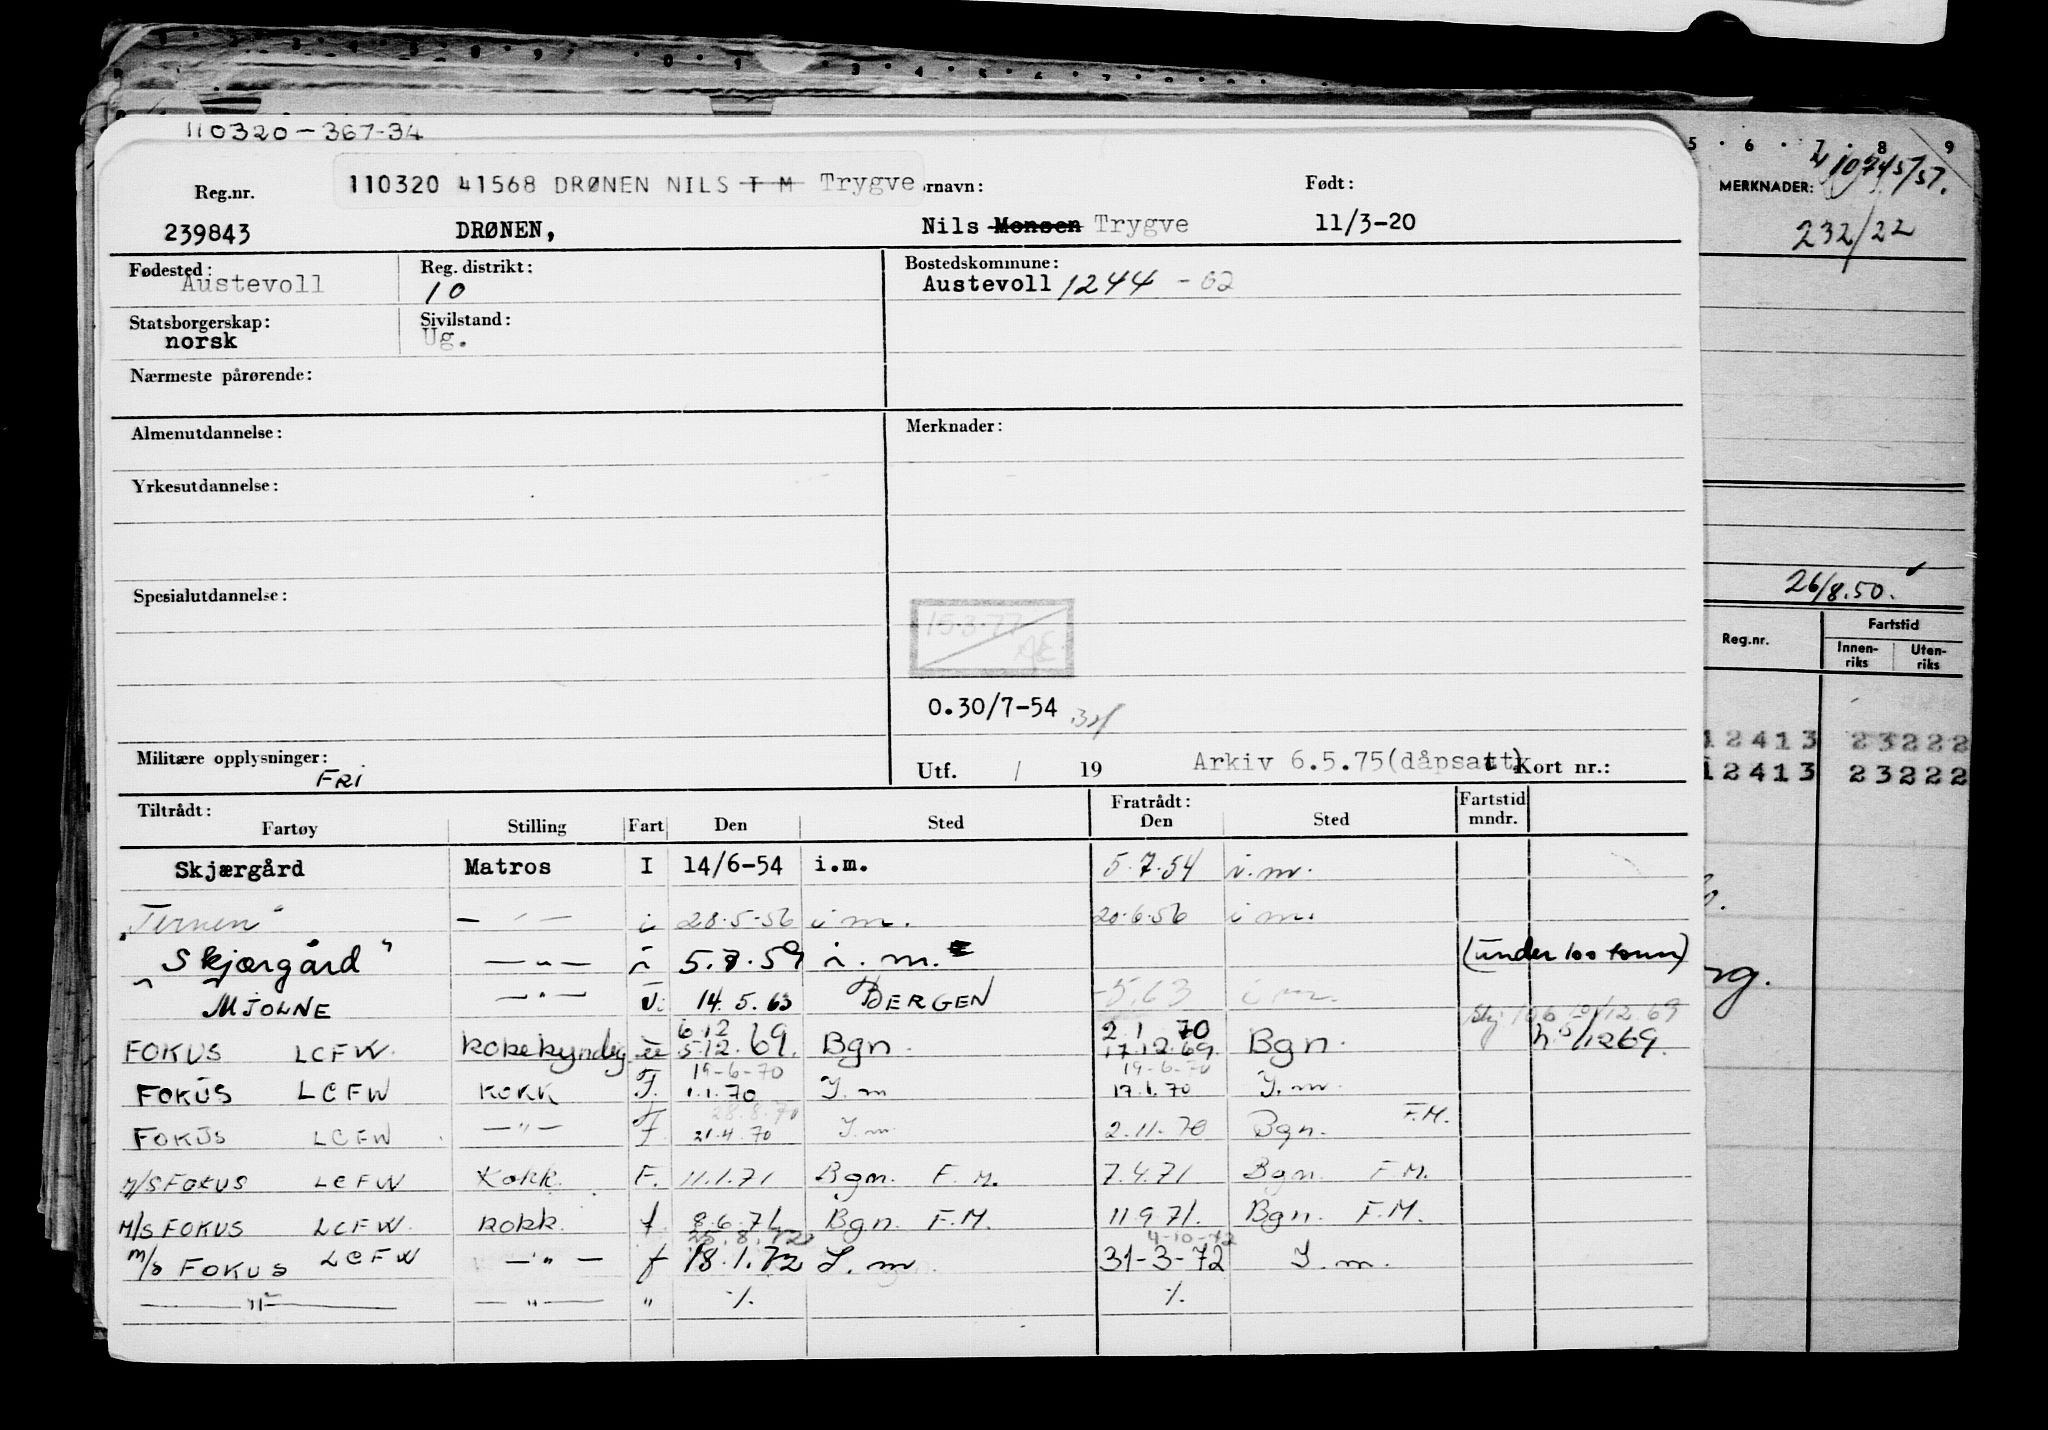 110320-367-34
Reg.nr. 110320 41568 DRØNEN NILS T M Trygve ornavn: Født:
239843 DRØNEN, Nils Monsen Trygve 11/3-20
Fødested: Reg. distrikt: Bostedskommune:
Austevoll 10 Austevoll 1244 - 62
Statsborgerskap: Sivilstand:
norsk Ug.
Nærmeste pårørende:
Almenutdannelse: Merknader:
Yrkesutdannelse:
Spesialutdannelse:
15.3.77
AE
0.30/7-54
Militære opplysninger: Utf. / 19 Arkiv 6.5.75(dåpsatt) Kort nr.:
FRI
Tiltrådt: Fratrådt: Fartstid
Fartøy Stilling Fart Den Sted Den Sted mndr.
Skjærgård Matros I 14/6-54 i.m. 5.7.54 i.m.
"Ternen" — " — i 28.5-56 i m. 20.6.56 i m.
"Skjærgård" — " — i 5.8.59 i.m. (under 100 tonn)
MJOLNE — " — U. 14.5.63 BERGEN -5.63 i m.
6.12 2.1 70
FOKUS LCFW. kokekyndig 5.12.69. Bgn. 17.12.69. Bgn. /1269.
19-6-70 19-6-70
FOKUS LCFW KOKK F. 1.1.70 I.m 17.1.70 I.m.
28.8.70
FOKUS LCFW — " — F. 21.4.70 I.m. 2.11.70 Bgn. F.M.
M/S FOKUS LCFW Kokk. F. 11.1.71 Bgn. F.M. 7.4.71 Bgn. F.M.
M/S FOKUS LCFW. kokk. f. 8.6.71 Bgn. F.M. 11.9.71. Bgn. F.M.
25.8.72 4-10-72
m/s FOKUS LCFW — " — f 18.1.72 I.m 31-3-72 I.m.
— " — — " — " ·/. ·/.
5 · 6 · 7 · 8 9
MERKNADER: 10745/57.
232/22
26/8.50.
Reg.nr. Fartstid
Innen- Uten-
riks riks
12413 23222
12413 23222